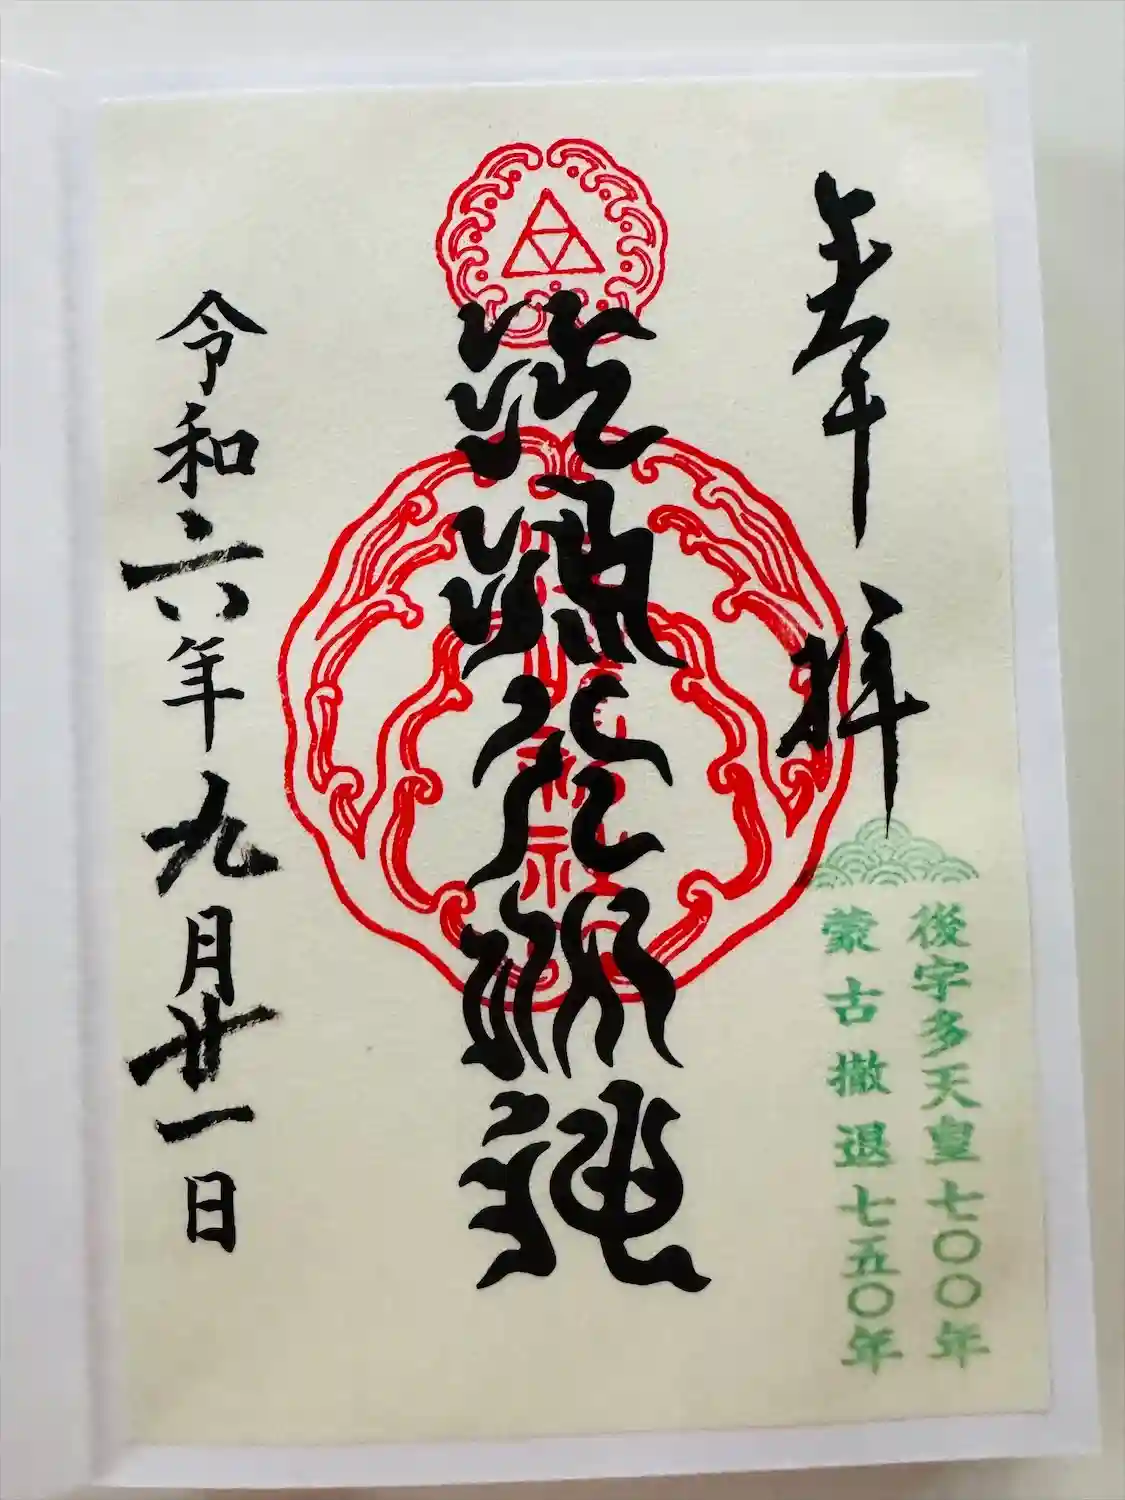 奉拝
後宇多天皇七〇〇年
蒙古撤退七五〇年
江島大明神
令和六年九月廿一日